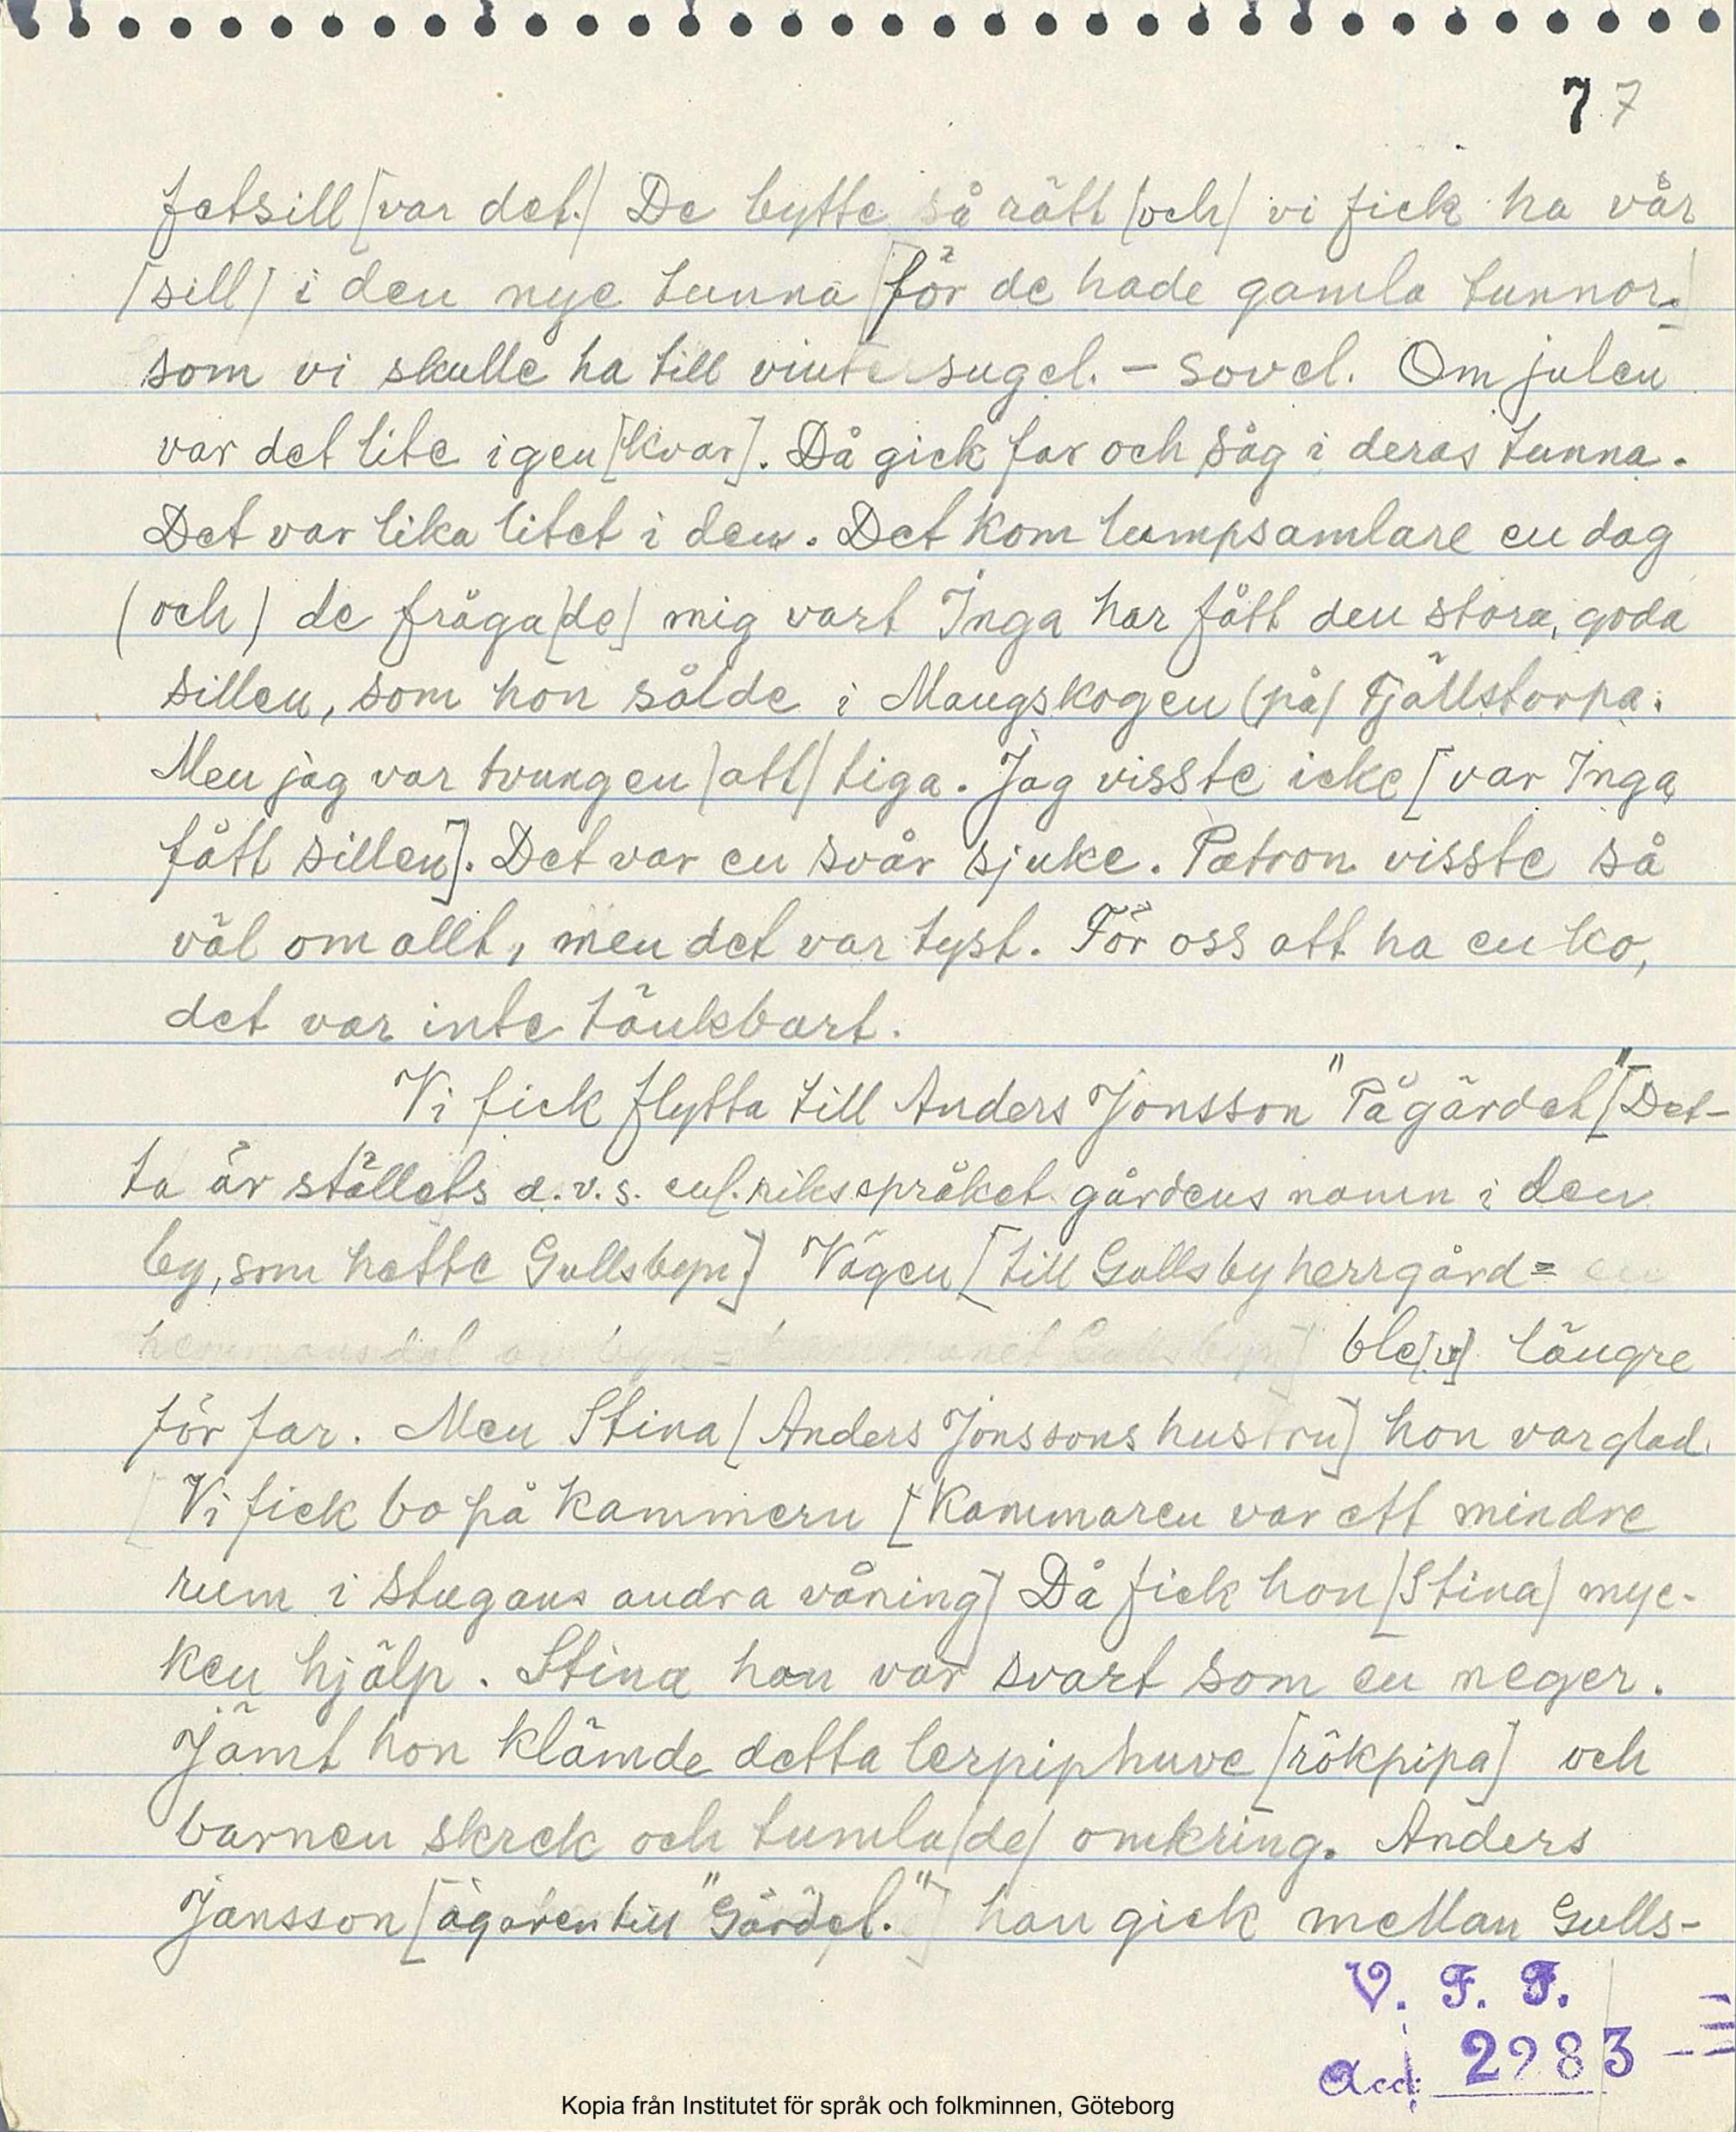 7 7
fetsill [var det.] De bytte så rätt [och] vi fick ha vår
[sill] i den nye tunna [för de hade gamla tunnor.]
som vi skulle ha till vintersugel. - sovel. Om julen
var det lite igen [kvar]. Då gick far och såg i deras tunna.
Det var lika litet i den. Det kom lumpsamlare en dag
(och) de fråga[de] mig vart Inga har fått den stora, goda
sillen, som hon sålde i Mangskogen (på) Fjällstorpa.
Men jag var tvungen [att] tiga. Jag visste icke [var Inga
fått sillen]. Det var en svår sjuke. Patron visste så
väl om allt, men det var tyst. För oss att ha en ko,
det var inte tänkbart.
Vi fick flytta till Anders Jonsson "På gärdet" [Det-
ta är ställets d.v.s. enl. riksspråket gårdens namn i den
by, som hette Gullsbyn] Vägen [till Gullsby herrgård=
ble[v] längre
för far. Men Stina [Anders Jonssons hustru] hon var glad.
Vi fick bo på kammern [Kammaren var ett mindre
rum i stugans andra våning] Då fick hon [Stina] myc-
ken hjälp. Stina hon var svart som en neger.
Jämt hon klämde detta lerpiphuve [rökpipa] och
barnen skrek och tumla[de] omkring. Anders
Jansson [ägaren till "Gärdet."] han gick mellan Gulls-
V. F. F.
Acc: 2983
Kopia från Institutet för språk och folkminnen, Göteborg